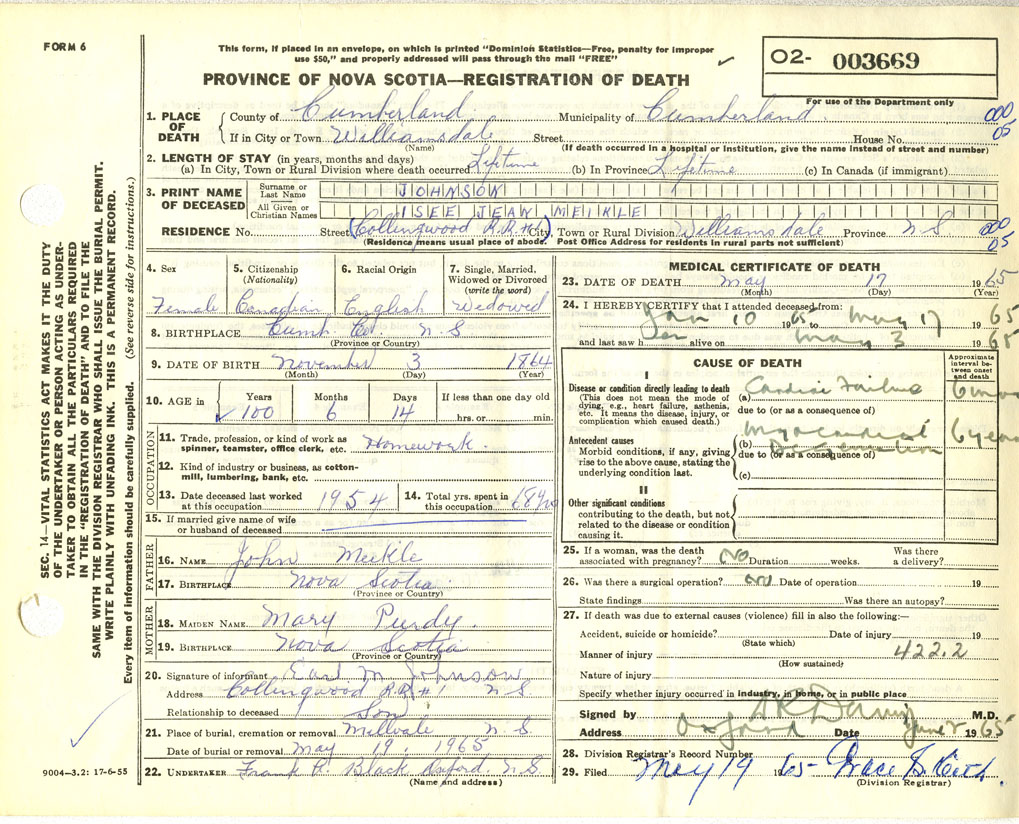 FORM 6
This form, if placed in an envelope, on which is printed "Dominion Statistics—Free, penalty for improper
use $50," and properly addressed will pass through the mail "FREE"
PROVINCE OF NOVA SCOTIA—REGISTRATION OF DEATH
02- 003669
For use of the Department only
1. PLACE OF DEATH County of Cumberland Municipality of Cumberland. 000
If in City or Town Williamsdale Street House No. 05
(Name) (If death occurred in a hospital or institution, give the name instead of street and number)
2. LENGTH OF STAY (in years, months and days)
(a) In City, Town or Rural Division where death occurred Lifetime (b) In Province Lifetime (c) In Canada (if immigrant)
3. PRINT NAME OF DECEASED Surname or Last Name JOHNSON
All Given or Christian Names ISEE JEAN MEIKLE
RESIDENCE No. Street (Collingwood R.R.#1) City, Town or Rural Division Williamsdale Province N S 000
05
(Residence means usual place of abode. Post Office Address for residents in rural parts not sufficient)
4. Sex 5. Citizenship (Nationality) 6. Racial Origin 7. Single, Married, Widowed or Divorced (write the word)
Female Canadian English Widowed
8. BIRTHPLACE Cumb. Co. N. S
(Province or Country)
9. DATE OF BIRTH November 3 1864
(Month) (Day) (Year)
10. AGE in Years Months Days If less than one day old
100 6 14 hrs. or min.
OCCUPATION
11. Trade, profession, or kind of work as spinner, teamster, office clerk, etc. Homework.
12. Kind of industry or business, as cotton-mill, lumbering, bank, etc.
13. Date deceased last worked at this occupation 1954 14. Total yrs. spent in this occupation 68 yrs
15. If married give name of wife or husband of deceased
FATHER
16. NAME John Meikle
17. BIRTHPLACE Nova Scotia.
(Province or Country)
MOTHER
18. MAIDEN NAME Mary Purdy.
19. BIRTHPLACE Nova Scotia
(Province or Country)
20. Signature of informant Earl M Johnson
Address Collingwood R.R #1 N S
Relationship to deceased Son
21. Place of burial, cremation or removal Millvale N. S
Date of burial or removal May 19, 1965
22. UNDERTAKER Frank R. Black Oxford N. S
(Name and address)
MEDICAL CERTIFICATE OF DEATH
23. DATE OF DEATH May 17 1965
(Month) (Day) (Year)
24. I HEREBY CERTIFY that I attended deceased from:
Jan 10 1965 to May 17 1965
and last saw her alive on May 3 1965
CAUSE OF DEATH
Approximate interval between onset and death
I
Disease or condition directly leading to death
(This does not mean the mode of dying, e.g., heart failure, asthenia, etc. It means the disease, injury, or complication which caused death.)
(a) Cardiac Failure 6 mos
due to (or as a consequence of)
Antecedent causes
Morbid conditions, if any, giving rise to the above cause, stating the underlying condition last.
(b) Myocardial Degeneration 6 years
due to (or as a consequence of)
(c)
II
Other significant conditions
contributing to the death, but not related to the disease or condition causing it.
25. If a woman, was the death associated with pregnancy? NO Duration weeks. Was there a delivery?
26. Was there a surgical operation? NO Date of operation 19
State findings Was there an autopsy?
27. If death was due to external causes (violence) fill in also the following:—
Accident, suicide or homicide? Date of injury 19
(State which)
Manner of injury 422.2
(How sustained)
Nature of injury
Specify whether injury occurred in industry, in home, or in public place
Signed by M.D.
Address Oxford Date June 2 1965
28. Division Registrar's Record Number
29. Filed May 19 1965
(Division Registrar)
SEC. 14—VITAL STATISTICS ACT MAKES IT THE DUTY
OF THE UNDERTAKER OR PERSON ACTING AS UNDER-
TAKER TO OBTAIN ALL THE PARTICULARS REQUIRED
IN THE "REGISTRATION OF DEATH" AND TO FILE THE
SAME WITH THE DIVISION REGISTRAR WHO SHALL ISSUE THE BURIAL PERMIT.
WRITE PLAINLY WITH UNFADING INK. THIS IS A PERMANENT RECORD.
Every item of information should be carefully supplied. (See reverse side for instructions.)
9004—3.2: 17-6-55